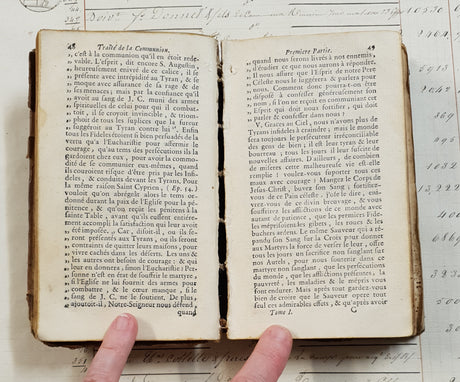 48 Traité de la Communion.
„ c'est à la communion qu'il en étoit rede-
„ vable. L'esprit, dit encore S. Augustin,
„ heureusement enivré de ce calice, il se
„ présente avec intrépidité au Tyran, & se
„ moque avec assurance de la rage & de
„ ses menaces; mais par la confiance qu'il
„ avoit au sang de J. C. muni des armes
„ spirituelles de celui pour qui il combat-
„ toit, il se croyoit invincible, & triom-
„ phoit de tous les supplices que la fureur
„ suggéroit au Tyran contre lui". Enfin
tous les Fideles étoient si bien persuadés de la
vertu qu'a l'Eucharistie pour affermir le
courage, qu'au tems des persécutions ils la
gardoient chez eux, pour avoir la commo-
dité de se communier eux-mêmes, quand
ils couroient risque d'être pris par les Infi-
deles, & conduits devant les Tyrans. Pour
la même raison Saint Cyprien, ( Ep. 14. )
vouloit qu'on abrégeât alors le tems or-
donné durant la paix de l'Eglise pour la pé-
nitence, & qu'on reçût les pénitens à la
sainte Table, avant qu'ils eussent entiére-
ment accompli la satisfaction qui leur avoit
été imposée. „ Car, disoit-il, ou ils se-
„ ront présentés aux Tyrans, ou ils seront
„ contraints de quitter leurs maisons, pour
„ vivre cachés dans les déserts. Les uns &
„ les autres ont besoin de courage: & qui
„ leur en donnera, sinon l'Eucharistie? Per-
„ sonne n'est en état de souffrir le martyre,
„ si l'Eglise ne lui fournit des armes pour
„ combattre, & le cœur manque, si le
„ sang de J. C. ne le soutient. De plus,
„ ajoutoit-il, Notre-Seigneur nous défend,
quand
Premiere Partie. 49
„ quand nous serons livrés à nos ennemis,
„ d'étudier ce que nous aurons à répondre.
„ Il nous assure que l'Esprit de notre Pere
„ Céleste nous le suggérera & parlera pour
„ nous. Comment donc pourra-t-on être
„ disposé à confesser généreusement son
„ nom, si l'on ne reçoit en communiant cet
„ Esprit qui doit nous fortifier, & qui doit
„ parler & confesser dans nous?
V. Graces au Ciel, nous n'avons plus de
Tyrans infideles à craindre; mais le monde
sera toujours le persécuteur irréconciliable
des gens de bien; il est leur tyran & leur
bourreau, tous les jours il leur suscite de
nouvelles affaires. D'ailleurs, de combien
de miseres cette malheureuse vie est-elle
remplie: voulez-vous supporter tous ces
maux avec courage? Mangez le Corps de
Jesus-Christ, buvez son Sang, fortifiez-
vous de ce Pain céleste, j'ose le dire, eni-
vrez-vous de ce divin breuvage, & vous
souffrirez les afflictions de ce monde avec
autant de patience, que les premiers Fide-
les mépriserent les gibets, les roues & les
buchers ardens. Le même Sauveur qui a ré-
pandu son Sang sur la Croix pour donner
aux Martyrs la force de verser le leur, offre
tous les jours un sacrifice non sanglant sur
nos Autels, pour nous soutenir dans ce
martyre non sanglant, que les persécutions
du monde, que les afflictions présentes, la
pauvreté, les maladies & le mépris vous
font endurer. Mais après tout gardez-vous
bien de croire que le Sauveur opere tout
seul ces admirables effets, & qu'après avoir
Tome I. C